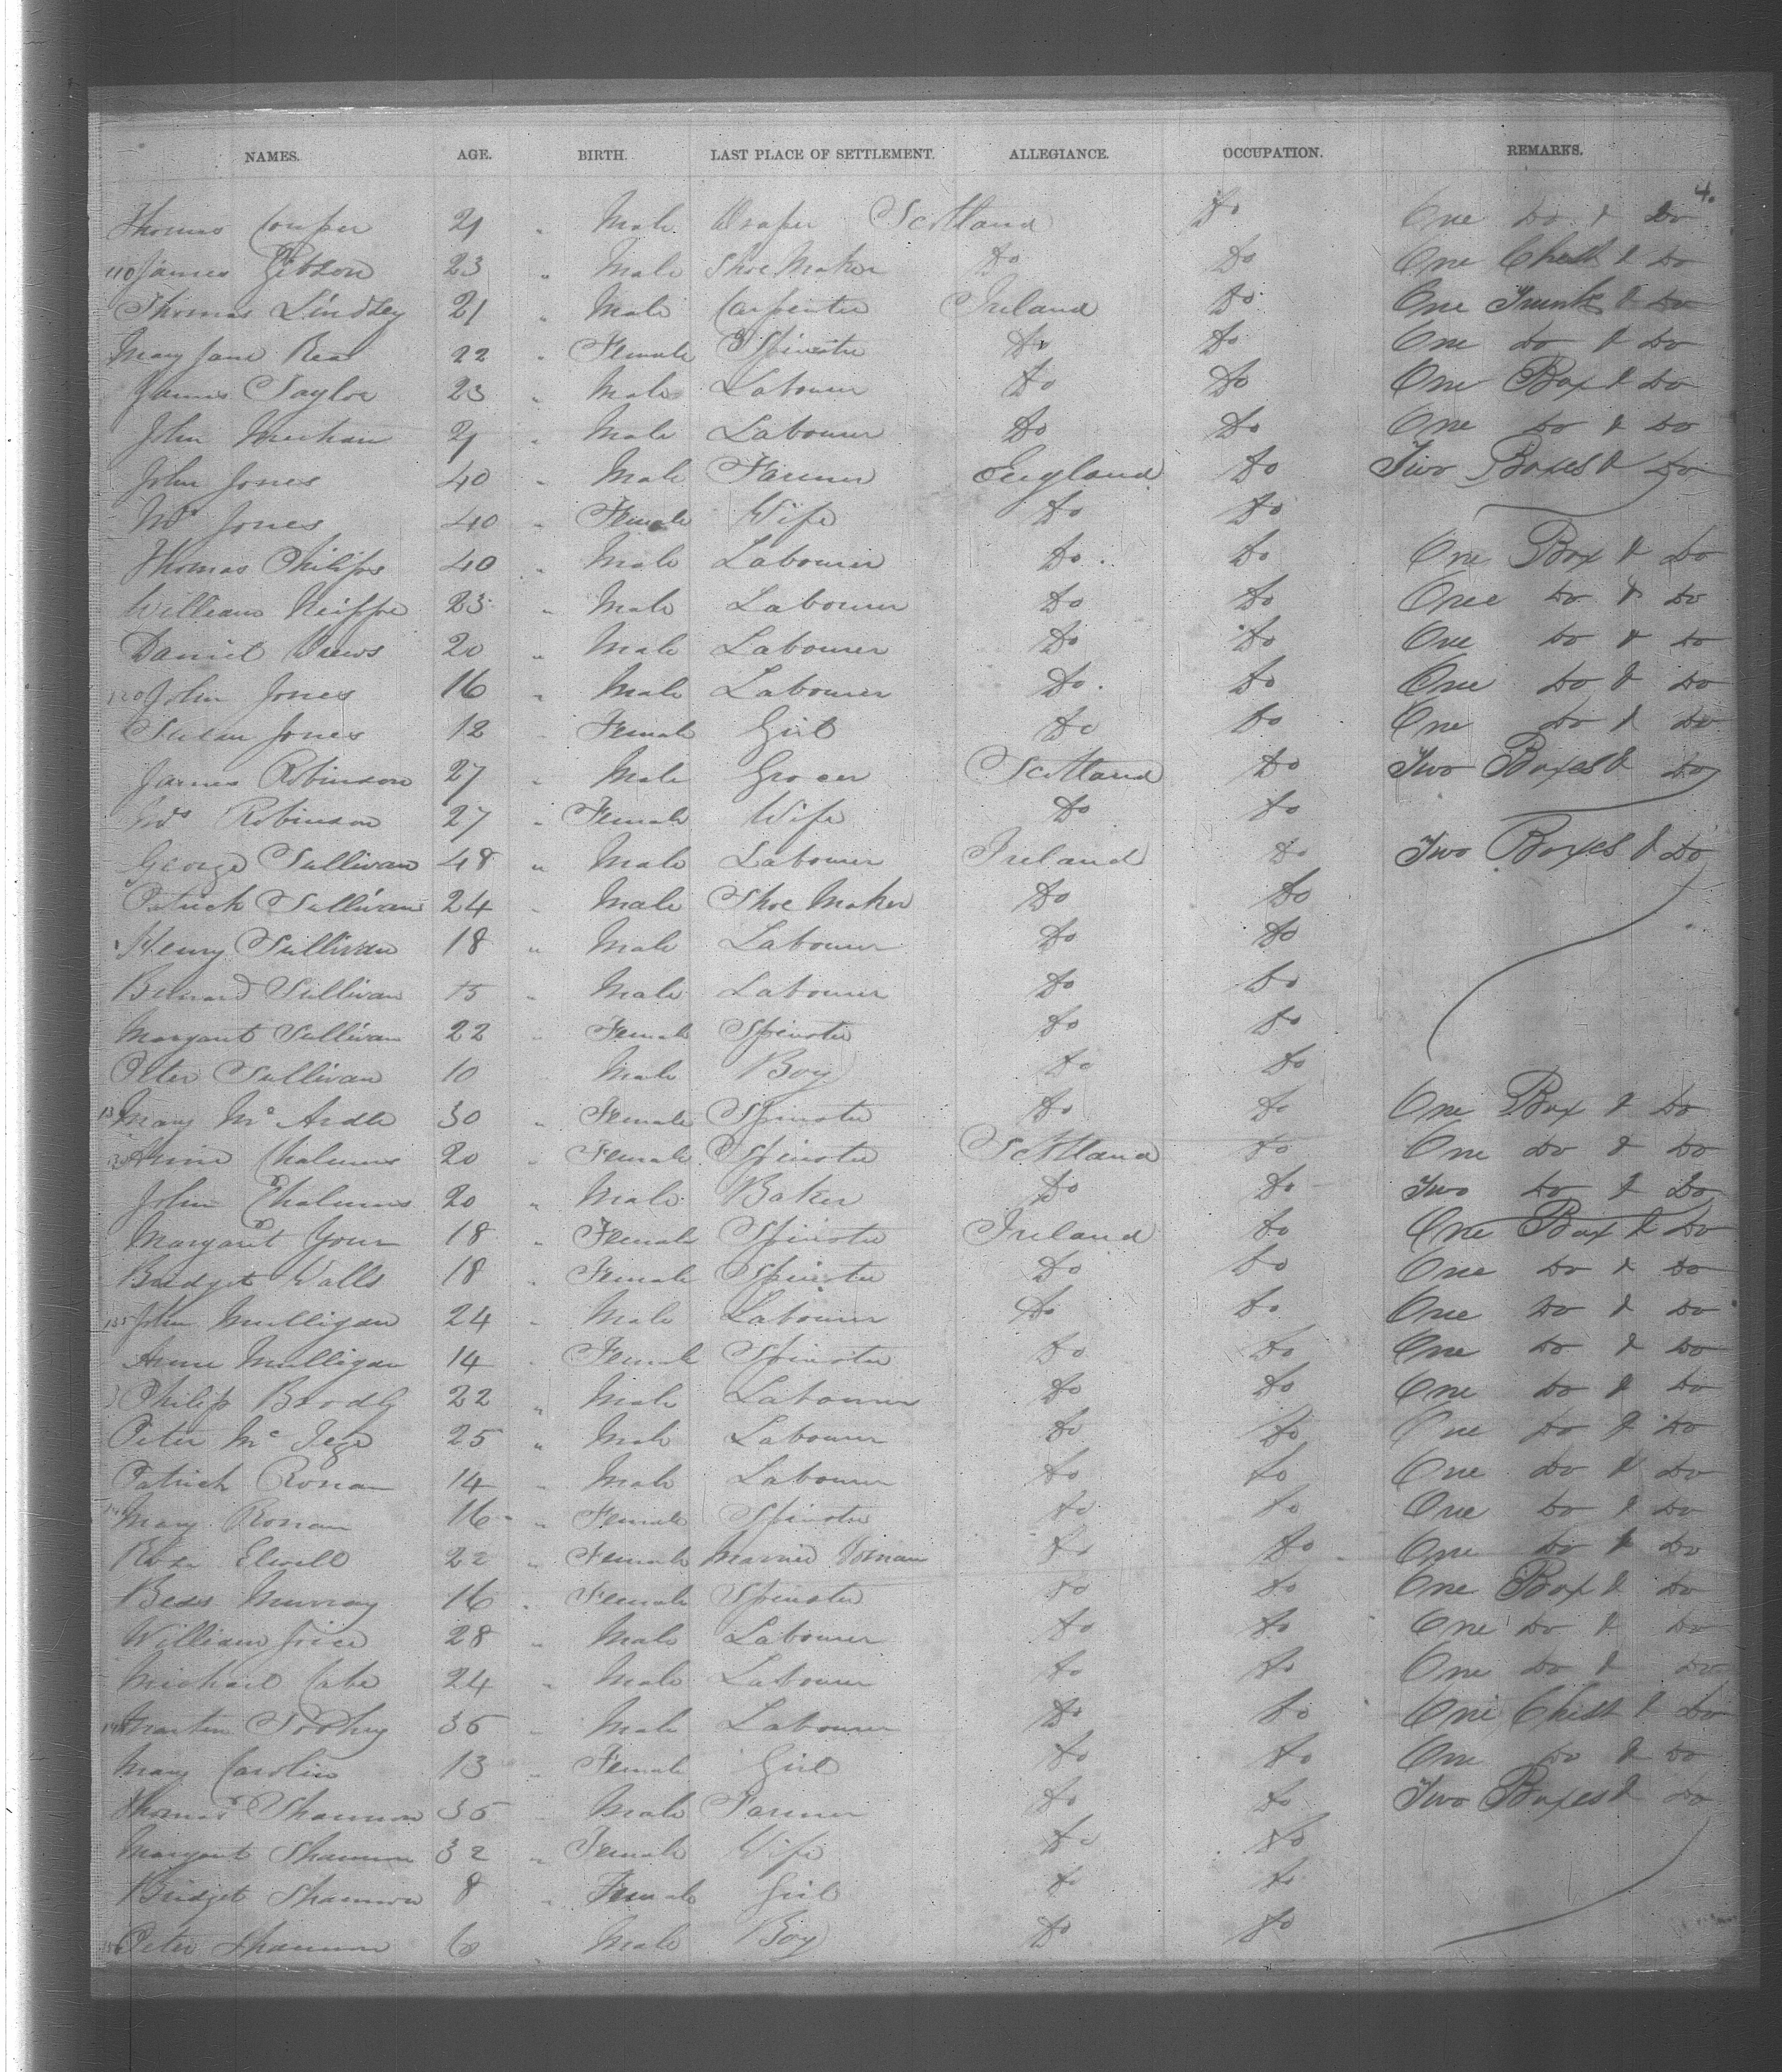 NAMES. AGE. BIRTH. LAST PLACE OF SETTLEMENT. ALLEGIANCE. OCCUPATION. REMARKS.
4.
Thomas Couper 21 " Male Draper Scotland Do One Do & Do
110 James Gibson 23 " Male Shoe Maker Do Do One Chest & Do
Thomas Lindsey 21 " Male Carpenter Ireland Do One Trunk & Do
Mary Jane Rea 22 " Female Spinster Do Do One Do & Do
James Taylor 23 " Male Labourer Do Do One Box & Do
John Meehan 21 " Male Labourer Do Do One Do & Do
John Jones 40 " Male Farmer England Do Two Boxes & Do
Mrs Jones 40 " Female Wife Do Do
Thomas Philips 40 " Male Labourer Do Do One Box & Do
William 23 " Male Labourer Do Do One Do & Do
Daniel 20 " Male Labourer Do Do One Do & Do
120 John Jones 16 " Male Labourer Do Do One Do & Do
Susan Jones 12 " Female Girl Do Do One Do & Do
James Robinson 27 " Male Grocer Scotland Do Two Boxes & Do
Mrs Robinson 27 " Female Wife Do Do
George Sullivan 48 " Male Labourer Ireland Do Two Boxes & Do
Patrick Sullivan 24 " Male Shoe Maker Do Do
Henry Sullivan 18 " Male Labourer Do Do
Bernard Sullivan 15 " Male Labourer Do Do
Margaret Sullivan 22 " Female Spinster Do Do
Peter Sullivan 10 Male Boy Do Do
Mary Mc Ardle 30 " Female Spinster Do Do One Box & Do
Anne Chalmers 20 " Female Spinster Scotland Do One Do & Do
John Chalmers 20 " Male Baker Do Do Two Do & Do
Margaret 18 " Female Spinster Ireland Do One Box & Do
Bridget Walls 18 " Female Spinster Do Do One Do & Do
135 John Mulligan 24 " Male Labourer Do Do One Do & Do
Anne Mulligan 14 " Female Spinster Do Do One Do & Do
Philip 22 " Male Labourer Do Do One Do & Do
Peter Mc 25 " Male Labourer Do Do One Do & Do
Patrick Ronan 14 " Male Labourer Do Do One Do & Do
Mary Ronan 16 " Female Spinster Do Do One Do & Do
Rose 22 " Female Married Woman Do Do One Do & Do
Bess Murray 16 " Female Spinster Do Do One Box & Do
William 28 " Male Labourer Do Do One Do & Do
Michael Cabe 24 " Male Labourer Do Do One Do & Do
Martin 35 " Male Labourer Do Do One Chest & Do
Mary Carolin 13 " Female Girl Do Do One Do & Do
Thomas Shannon 35 " Male Farmer Do Do Two Boxes & Do
Margaret Shannon 32 " Female Wife Do Do
Bridget Shannon 8 " Female Girl Do Do
Peter Shannon 6 " Male Boy Do Do